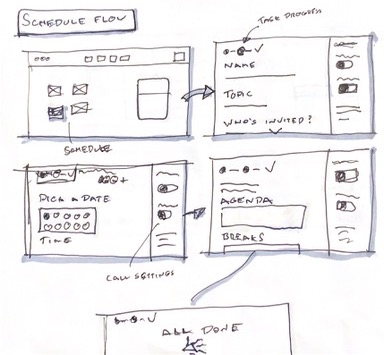 SCHEDULE FLOW
TASK PROGRESS
NAME
TOPIC
WHO'S INVITED?
SCHEDULE
PICK A DATE
TIME
CALL SETTINGS
AGENDA
BREAKS
ALL DONE